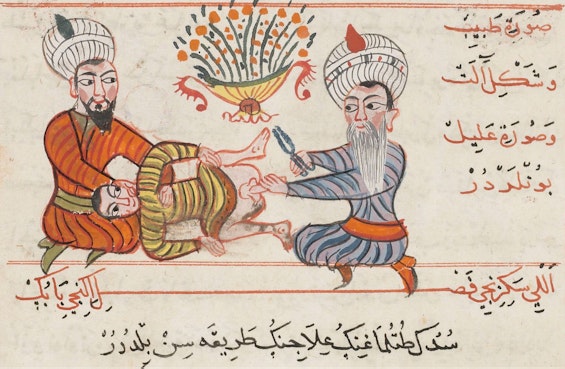 صُورَةِ طَبِيبْ
وَشَكْلِ آلَتْ
وَصُورَةِ عَلِيلْ
بُونْلَرْدُرْ
اَللِّي سَكِزِنْجِي فَصْلِ اِكِنْجِي بَابُكْ
سُدُكْ طُتُلْمَاغِنُكْ عِلَاجِنُكْ طَرِيقَه سِنْ بِلْدُرُرْ